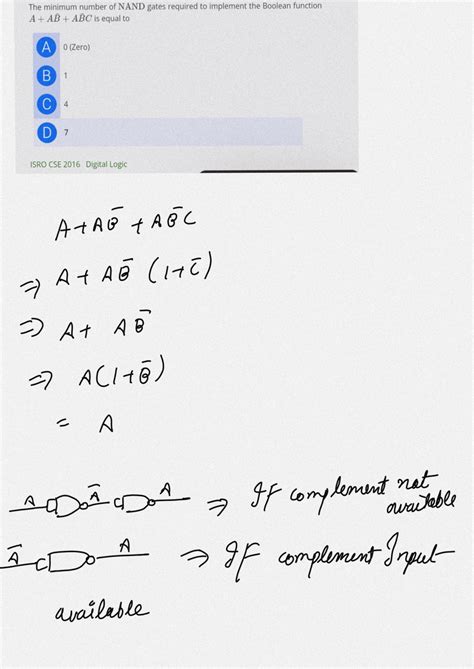 The minimum number of NAND gates required to implement the Boolean function
A + AB̄ + AB̄C is equal to
A 0 (Zero)
B 1
C 4
D 7
ISRO CSE 2016 Digital Logic
A+AB̄ + AB̄C
⇒ A + AB̄ (1+C̄)
⇒ A + AB̄
⇒ A(1+B̄)
= A
A Ā A ⇒ If complement not
available
Ā A ⇒ IF complement Input
available